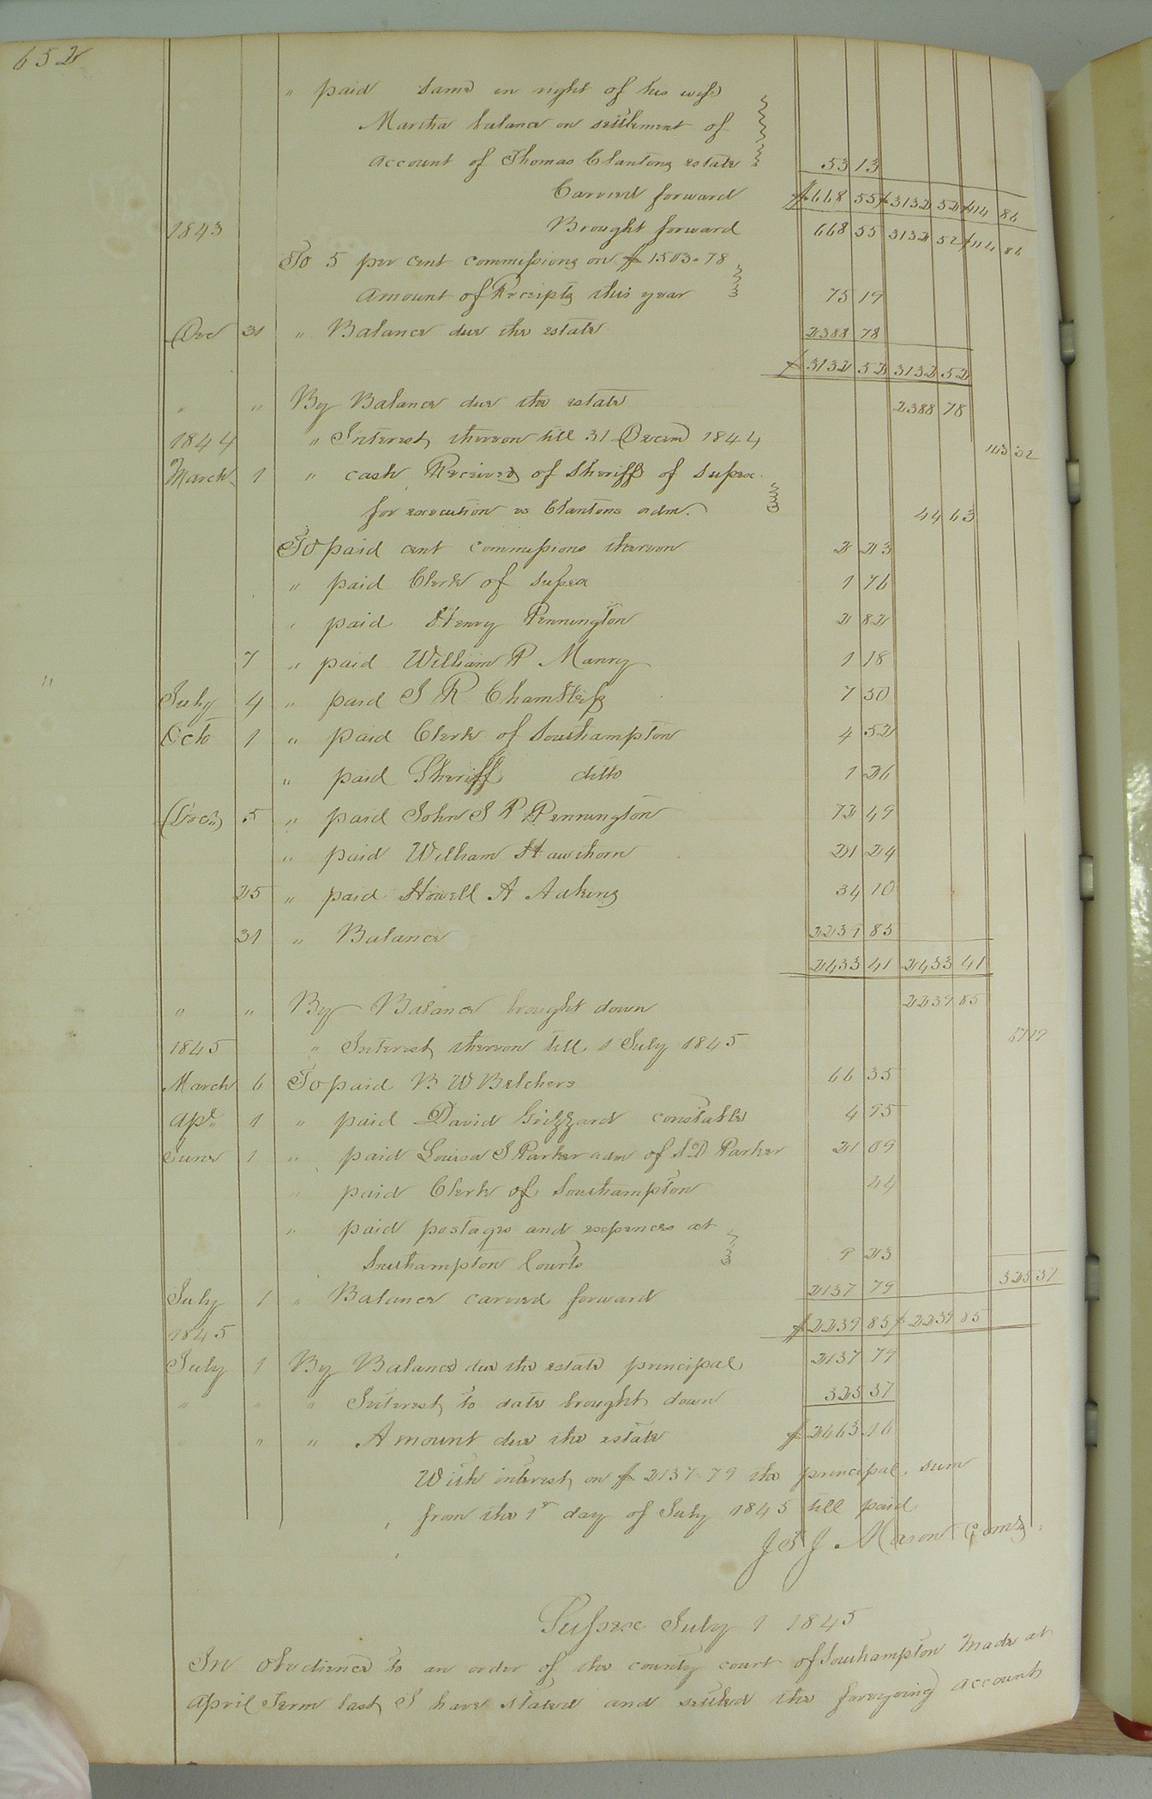 652
" paid same in right of his wife
Martha balance on settlement of
account of Thomas Clantons estate 53 13
Carried forward $668 55 $3132 52 $114 86
1843 Brought forward 668 55 3132 52 $114 86
To 5 per cent commissions on $1503.78
amount of Receipts this year 75 19
Dec 31 " Balance due the estate 2388 78
$3132 52 3132 52
" " By Balance due the estate 2388 78
1844 " Interest thereon till 31 Decem 1844 143 32
March 1 " cash Received of Sheriff of Sussex
for execution vs Clantons adm. 44 63
To paid cent commissions thereon 2 23
" paid Clerk of Sussex 1 76
" paid Henry Pennington 2 82
7 " paid William P Manry 1 18
July 4 " paid S R Chambliss 7 50
Octo 1 " paid Clerk of Southampton 4 52
" paid Sheriff ditto 1 26
Decr 5 " paid John S P Pennington 72 49
" paid William Hawthorn 21 24
25 " paid Howell A Adkins 34 10
31 " Balance 2239 85
2433 41 2433 41
" " By Balance brought down 2239 85
1845 " Interest thereon till 1 July 1845 67 19
March 6 To paid B W Belchers 66 35
Apl 1 " paid David Grizzard constable 4 95
June 1 " paid Louisa S Parker adm of S D Parker 21 09
" paid Clerk of Southampton 44
" paid postage and expences at
Southampton Courts 9 23
July 1 " Balance carried forward 2137 79 325 37
1845 $2239 85 $2239 85
July 1 By Balance due the estate principal 2137 79
" " " Interest to date brought down 325 37
" " Amount due the estate $2463 16
With interest on $2137.79 the principal sum
from the 1st day of July 1845 till paid
J Mason Comr
Sussex July 1 1845
In obedience to an order of the county court of Southampton made at
April Term last I have stated and settled the foregoing account